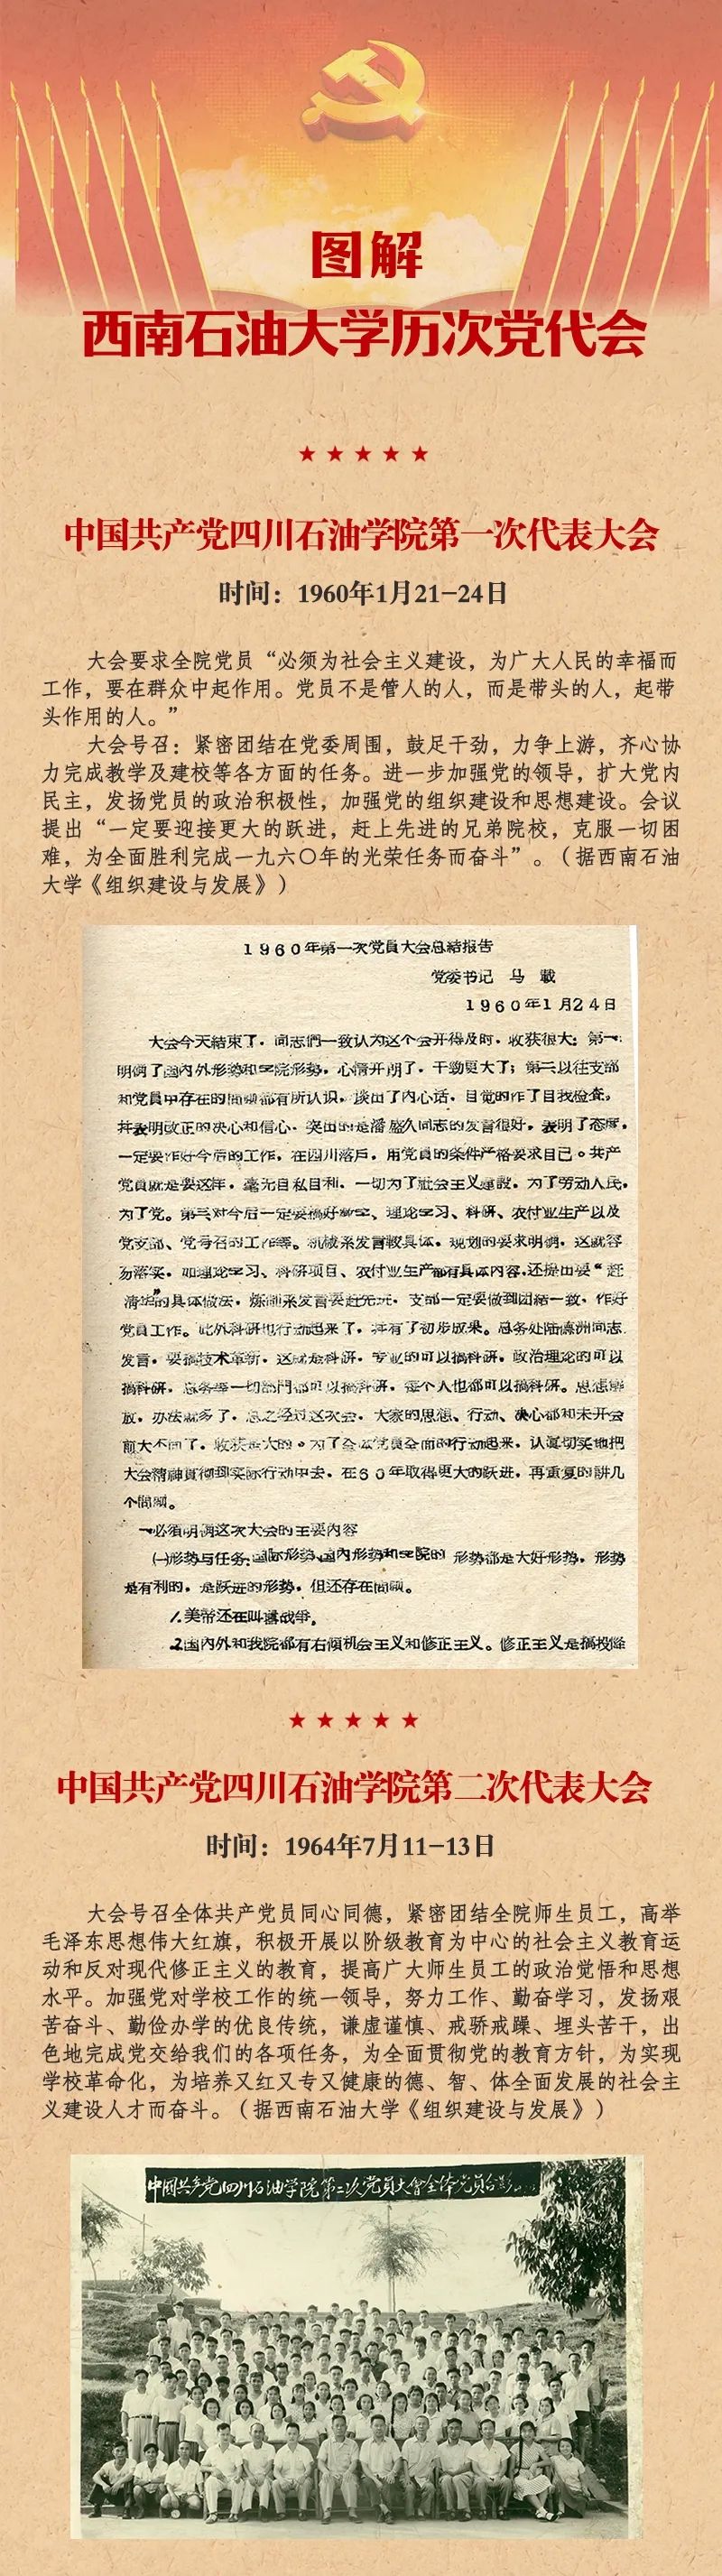 图解
西南石油大学历次党代会
中国共产党四川石油学院第一次代表大会
时间：1960年1月21-24日
大会要求全院党员“必须为社会主义建设，为广大人民的幸福而
工作，要在群众中起作用。党员不是管人的人，而是带头的人，起带
头作用的人。”
大会号召：紧密团结在党委周围，鼓足干劲，力争上游，齐心协
力完成教学及建校等各方面的任务。进一步加强党的领导，扩大党内
民主，发扬党员的政治积极性，加强党的组织建设和思想建设。会议
提出“一定要迎接更大的跃进，赶上先进的兄弟院校，克服一切困
难，为全面胜利完成一九六〇年的光荣任务而奋斗”。（据西南石油
大学《组织建设与发展》）
1960年第一次党員大会总結报告
党委书记 马 载
1960年1月24日
大会今天結束了，同志們一致认为这个会开得及时，收获很大：第一，
明确了国内外形势和学院形势，心情开朗了，干劲更大了；第二以往支部
和党員中存在的問題都有所认识，谈出了内心话，自觉的作了自我检查，
并表明改正的决心和信心，突出的是潘盛久同志的发言很好，表明了态度，
一定要作好今后的工作，在四川落户，用党員的条件严格要求自己。共产
党員就是要这样，毫无自私自利，一切为了社会主义建設，为了劳动人民，
为了党。第三对今后一定要搞好教学、理论学习、科研、农付业生产以及
党支部、党号召的工作等。机械系发言較具体，规划的要求明确，这就容
易落实，如理论学习、科研项目、农付业生产都有具体内容，还提出要“赶
清华”的具体做法，炼制系发言要赶先进，支部一定要做到团結一致，作好
党員工作。此外科研也行动起来了，并有了初步成果。总务处陆德洲同志
发言，要搞技术革新，这就是科研，专业的可以搞科研，政治理论的可以
搞科研，总务等一切部門都可以搞科研，每个人也都可以搞科研。思想解
放，办法就多了，总之经过这次会，大家的思想、行动、决心都和未开会
前大不同了，收获是大的。为了全体党員全面的行动起来，认真切实地把
大会精神貫彻到实际行动中去，在60年取得更大的跃进，再重复的讲几
个問題。
一必須明确这次大会的主要内容
㈠形势与任务：国际形势、国内形势和学院的形势都是大好形势，形势
是有利的，是跃进的形势，但还存在問題。
1.美帝还在叫嚣战争。
2.国内外和我院都有右傾机会主义和修正主义。修正主义是搞投降
中国共产党四川石油学院第二次代表大会
时间：1964年7月11-13日
大会号召全体共产党员同心同德，紧密团结全院师生员工，高举
毛泽东思想伟大红旗，积极开展以阶级教育为中心的社会主义教育运
动和反对现代修正主义的教育，提高广大师生员工的政治觉悟和思想
水平。加强党对学校工作的统一领导，努力工作、勤奋学习，发扬艰
苦奋斗、勤俭办学的优良传统，谦虚谨慎、戒骄戒躁、埋头苦干，出
色地完成党交给我们的各项任务，为全面贯彻党的教育方针，为实现
学校革命化，为培养又红又专又健康的德、智、体全面发展的社会主
义建设人才而奋斗。（据西南石油大学《组织建设与发展》）
中國共产党四川石油学院第二次党員大會全体党員合影